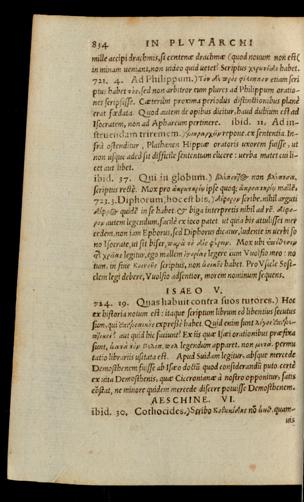 834 IN PLVTARCHI
mille accipi drachmis, si centenæ drachmæ (quod nouum non est)
in minam ueniant, non uideo quid uetet? Scriptus habet.
721. 4. Ad Philippum.) etiam scri
ptus habet sed non arbitror eum plures ad Philippum oratio-
nes scripsisse. Cæterùm proxima periodus distinctionibus planè
erat fœdata. Quod autem de opibus dicitur, haud dubium est ad
Isocratem, non ad Aphareum pertinere. ibid. 11. Ad in-
struendam triremem. repone, ex sententia. In-
frà ostenditur, Plathænen Hippiæ oratoris uxorem fuisse, ut
non usque adeò sit difficile sententiam elicere: uerba mutet cui li-
cet aut libet.
ibid. 37. Qui in globum.)
scriptus rectè. Mox pro ipse quoque malle.
723. 3. Diphorum, hoc est bis,) scribe, nihil arguti
quidē in se habet. & biga interpretis nihil ad rē.
autem legendum, facilè ex ioco patet. ut quia bis attulisset mer
cedem, non iam Ephorus, sed Diphorus dicatur, ludente in uerbi so
no Isocrate, ut sit biser, Mox ubi
legitur, ego mallem legere cum Vuolfio meo: no
tum. in fine scriptus, non habet. Pro Vsicle Sosi-
clem legi debere, Vuolfio adsentior, morem nominum sequens.
ISAEO V.
724. 19. Quas habuit contra suos tutores.) Hoc
ex historia notum est: itaque scriptum librum eò libentius secutus
sum, qui expressè habet. Quid enim sunt
aut quid hic faciunt? Ex iis quæ Isæi orationibus præfixa
sunt, legendum apparet. non permu
tatio librariis usitata est. Apud Suidam legitur, absque mercede
Demosthenem fuisse ab Isæo doctū quod considerandū puto. certè
ex uita Demosthenis, quæ Ciceronianæ à nostro opponitur, satis
cōstat, ne minore quidem mercede discere potuisse Demosthenem.
AESCHINE. VI.
ibid. 30. Cothocides.) Scribo quam-
uis